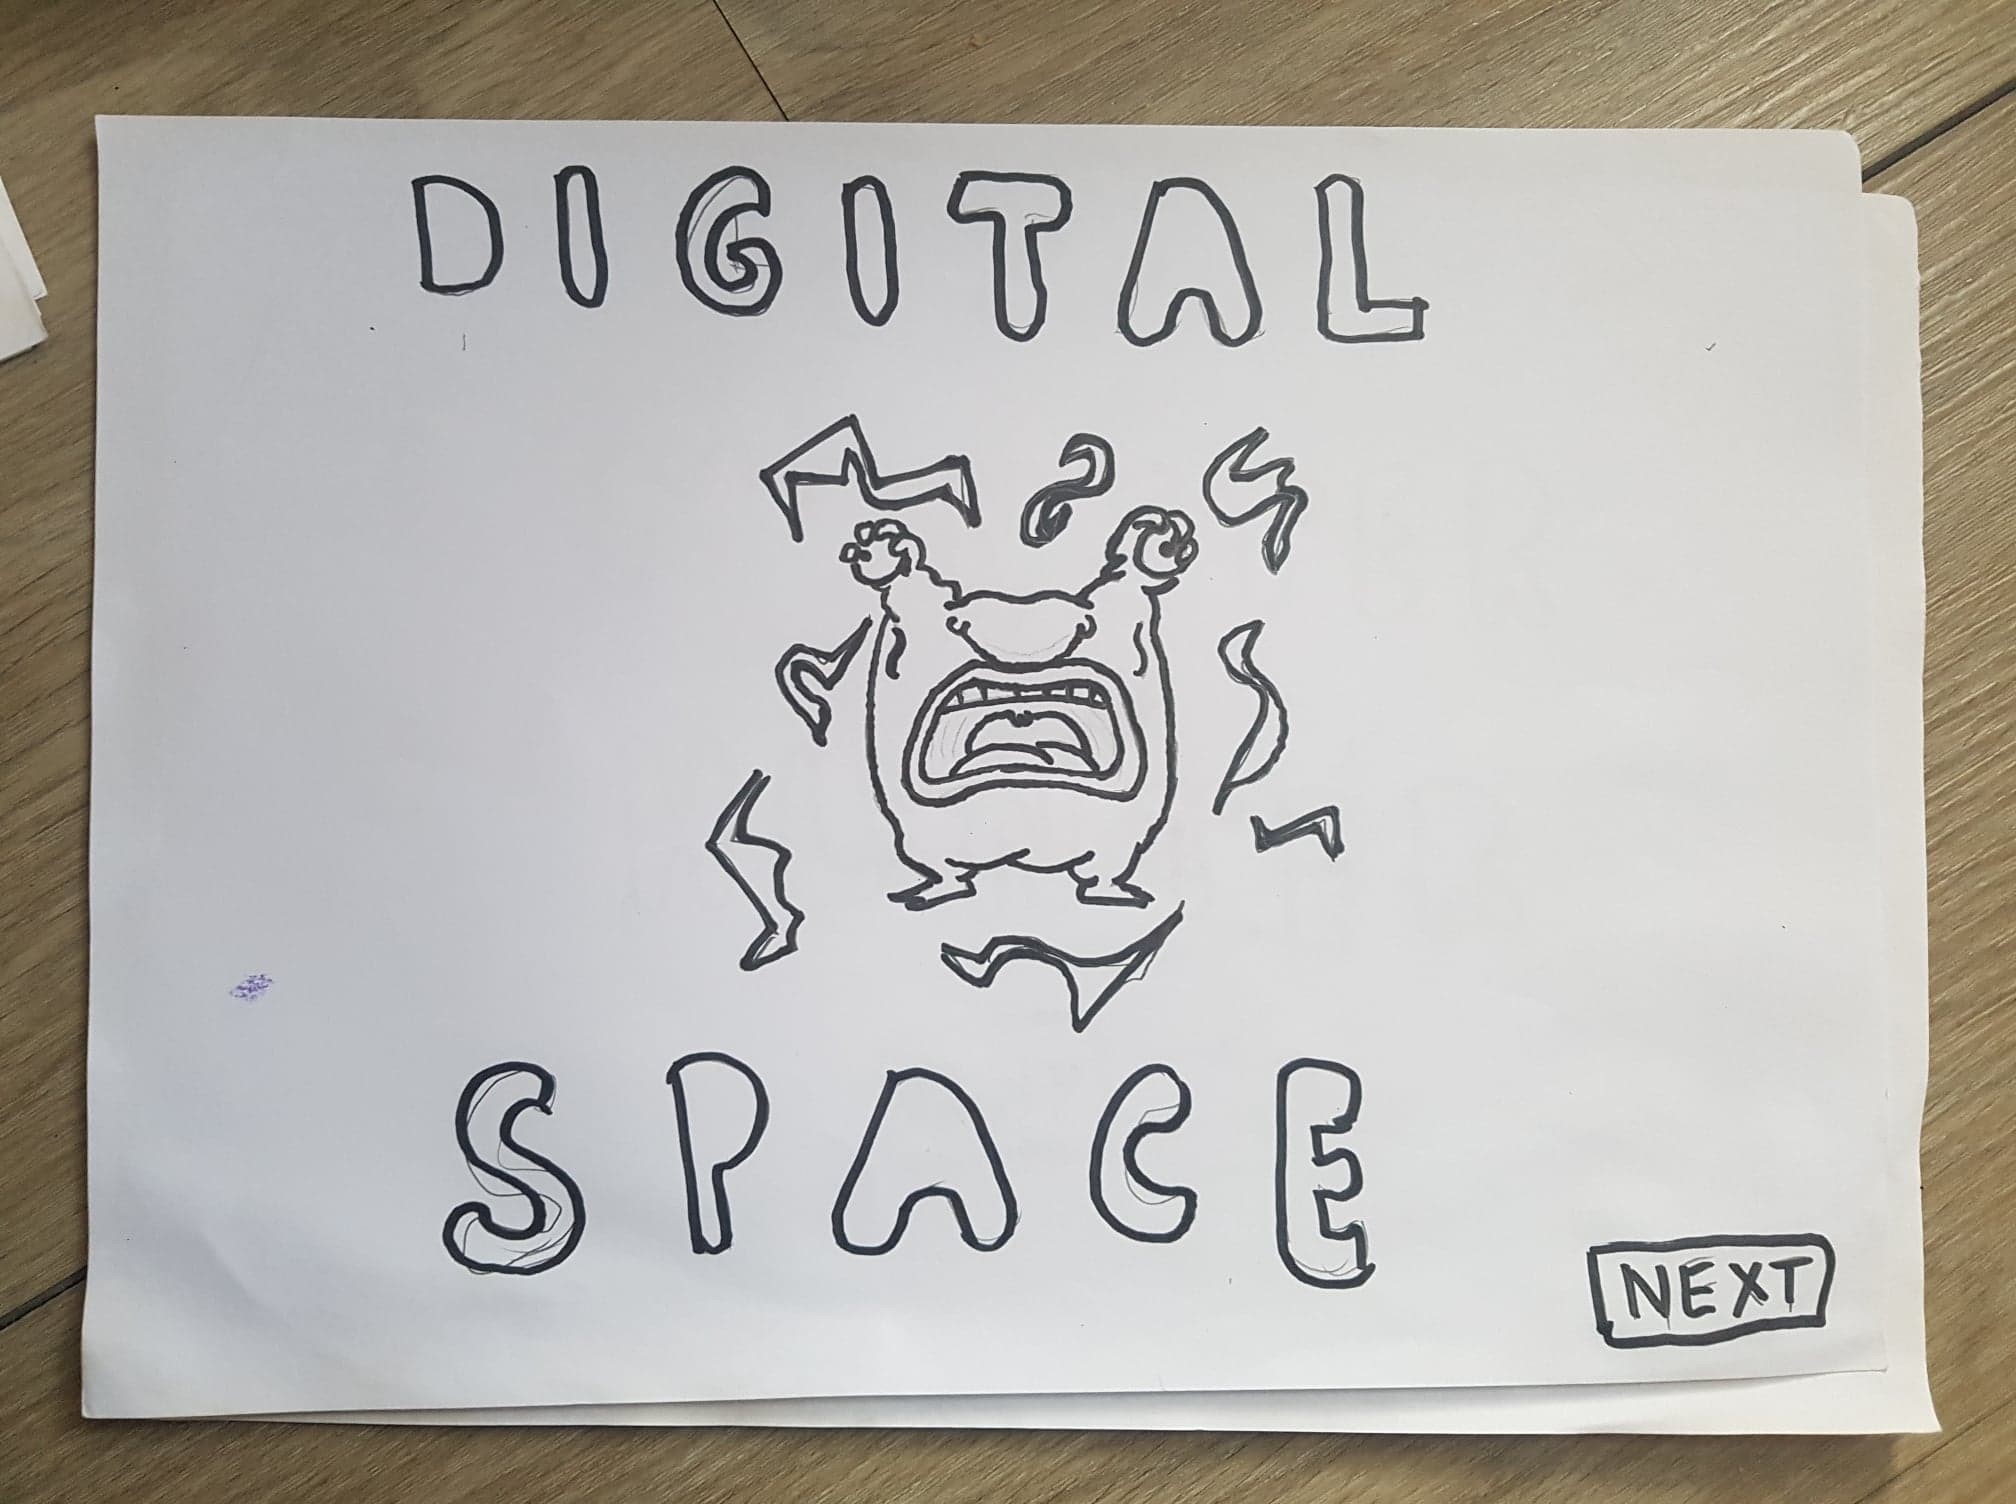 DIGITAL
SPACE
NEXT